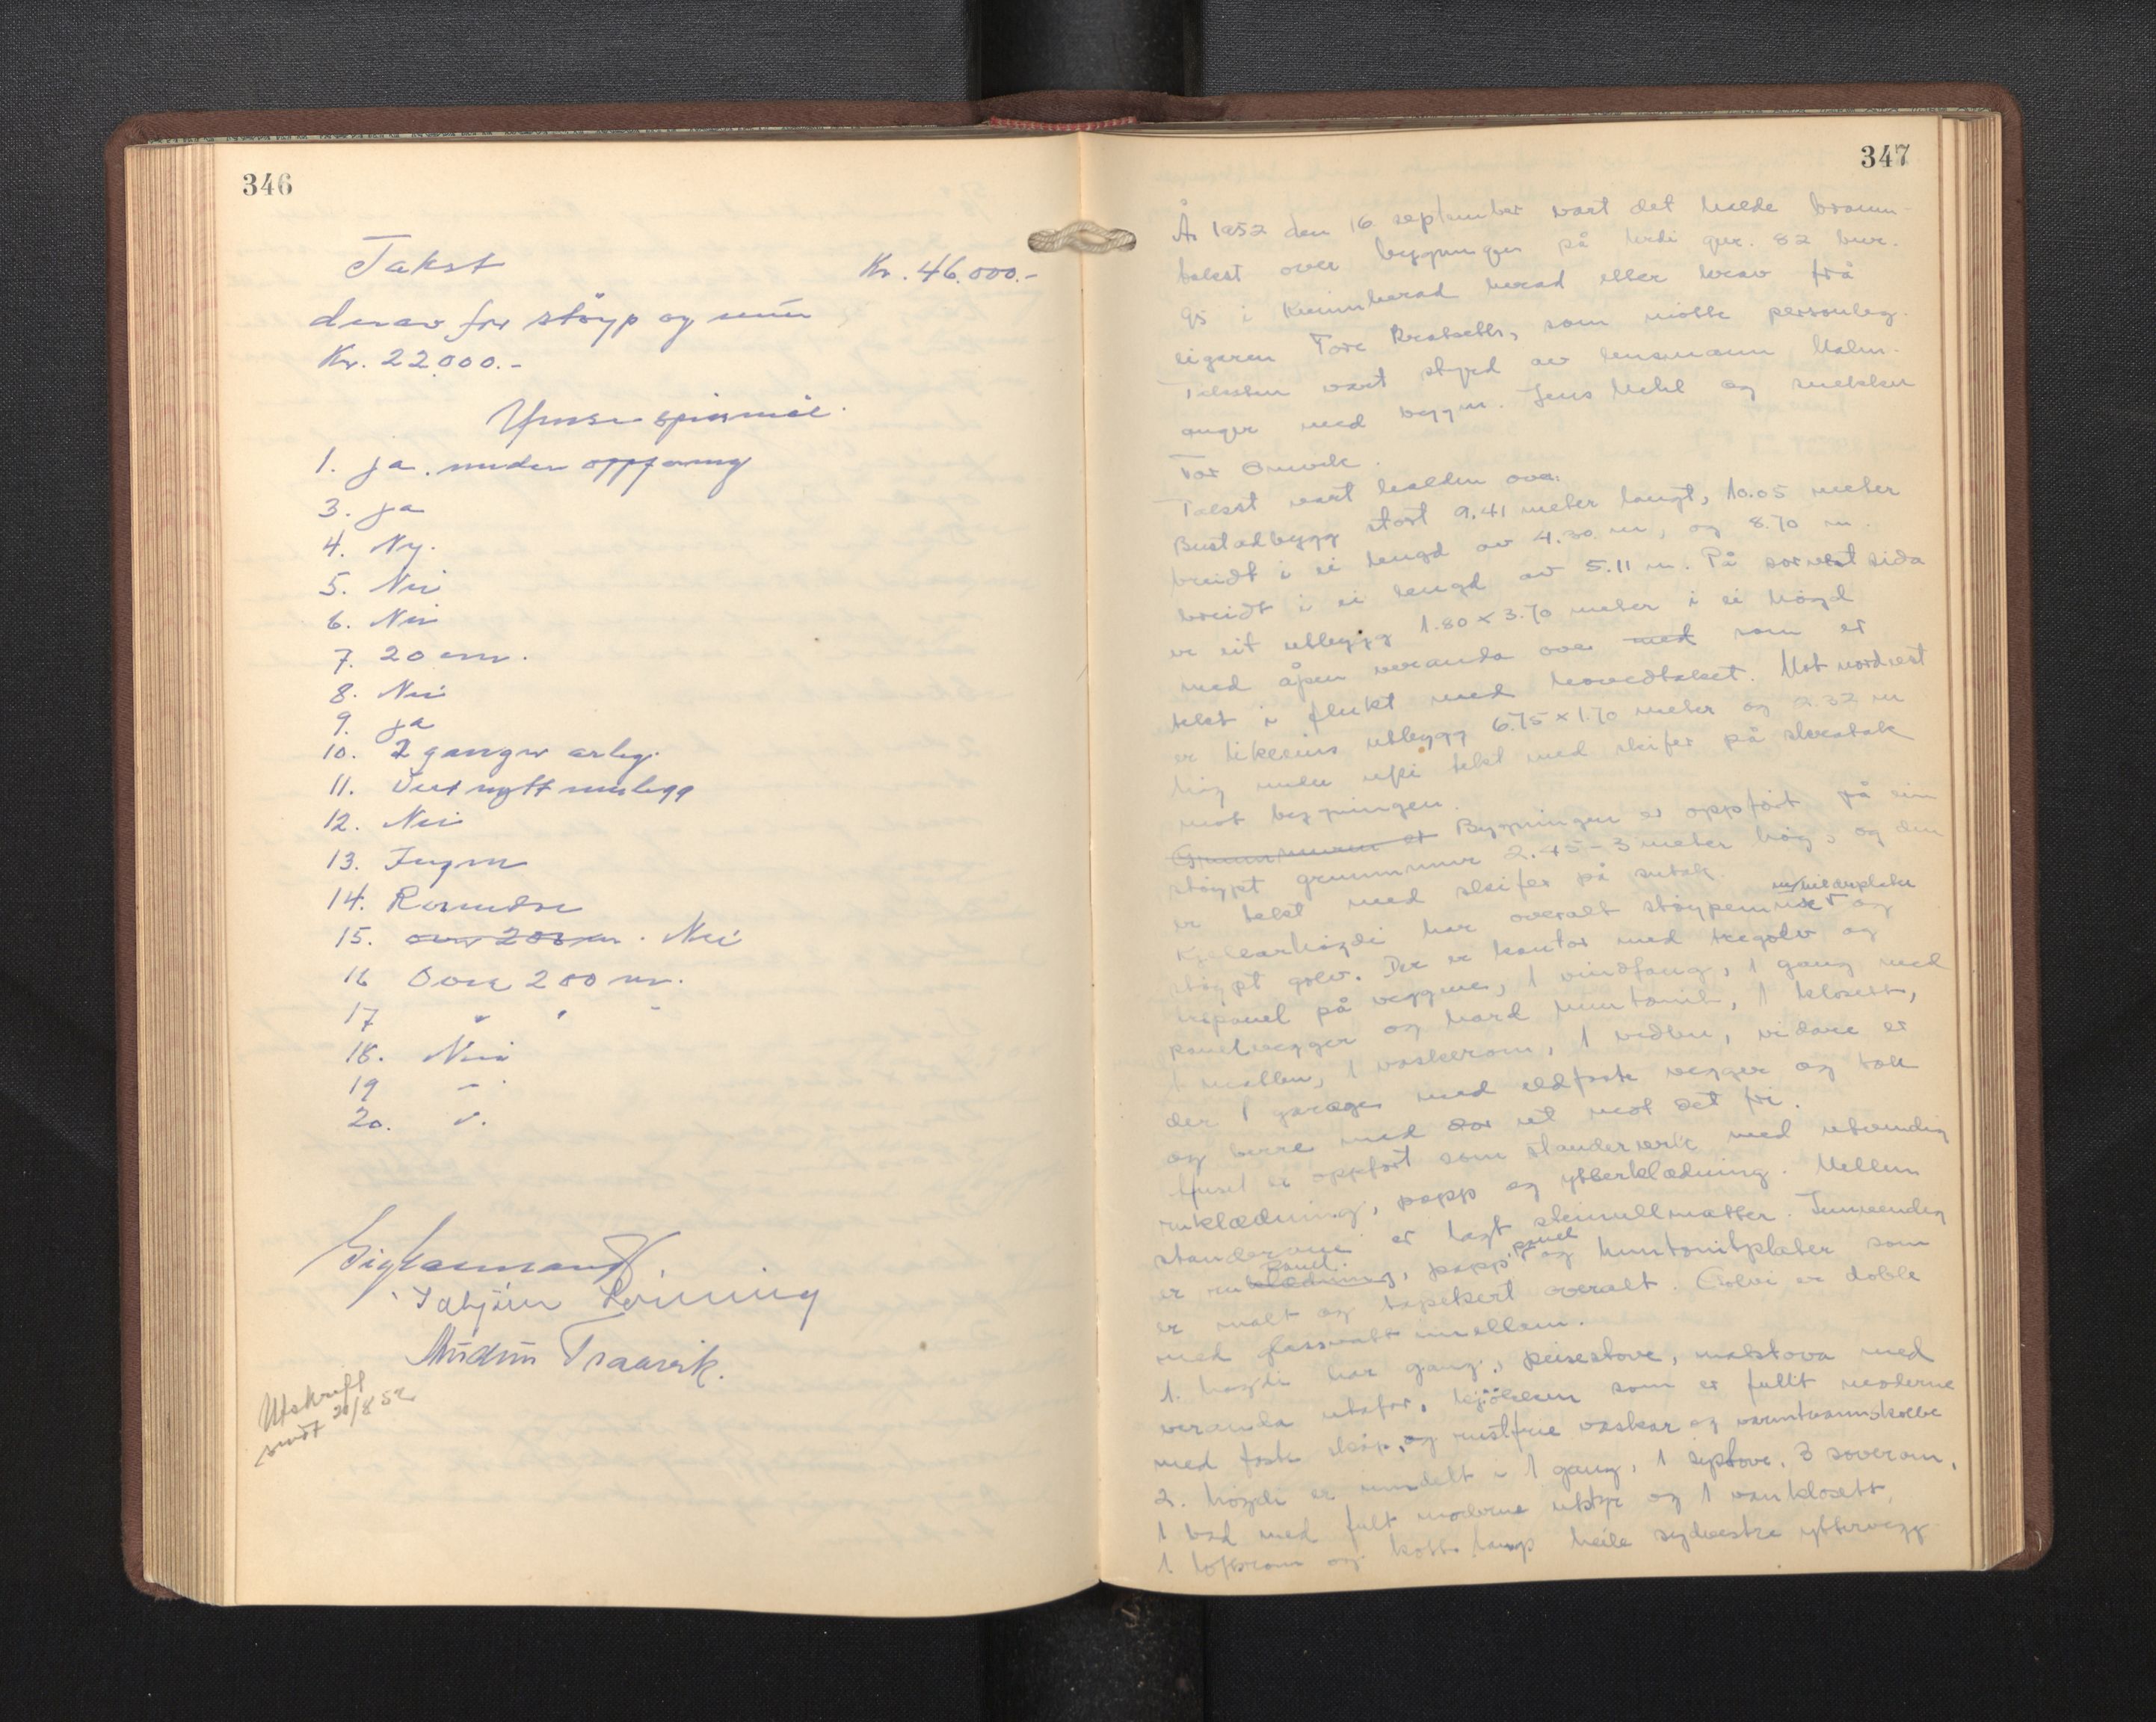 346
Takst Kr. 46.000.-
derav for støyp og mur
Kr. 22.000.-
Ymse spörsmål.
1. ja. under oppföring
3. ja
4. Ny.
5. Nei
6. Nei
7. 20 cm.
8. Nei
9. ja
10. 2 ganger årleg.
11. Vert nytt innlegg
12. Nei
13. Ingen
14.
15. over 200 m. Nei
16 Over 200 m.
17 " " -
18. Nei
19 -
20. ".
Torbjörn Rönning
Audun Traavik.
Utskrift
sendt 20/8 52
347
År 1952 den 16 september vart det halde brann-
takst over bygningen på gnr. 82 bnr.
95 i Kvinnherad herad etter krav frå
eigaren Tore Bratseth, som møtte personleg.
Taksten vart styrd av lensmann Malm-
anger med byggm. Jens Mehl og snekker
Tor Omvik.
Takst vart halden over:
Bustadbygg stort 9.41 meter langt, 10.05 meter
breidt i ei lengd av 4.30 m, og 8.70 m.
breidt i ei lengd av 5.11 m. På sørvest sida
er eit utbygg 1.80 x 3.70 meter i ei høgd
med åpen veranda over med som er
tekt i flukt med hovedtaket. Mot nordvest
er likeeins utbygg 6.75 x 1.70 meter og 2.32 m
høg under ufsi tekt med skifer på skråtak
mot bygningen.
Grunnmuren er Bygningen er oppført på ein
støypt grunnmur 2.45 - 3 meter høg, og den
er tekt med skifer på sutak.
Kjellarhøgdi har overalt støypemur m/ plater og
støypt golv. Der er kontor med tregolv og
trepanel på veggene, 1 vindfang, 1 gang med
panelvegger og hard huntonit, 1 klosett,
1 matbu, 1 vaskerom, 1 vedbu, vidare er
der 1 garage med eldfaste vegger og tak
og berre med dør ut mot det fri.
Huset er oppført som standerverk med utvendig
ruklædning, papp og ytterklædning. Mellom
standerane er lagt steinullmatter. Innvendig
er rupanel klædning, papp, panel og huntonitplater som
er malt og tapetsert overalt. Golvi er doble
med glassvatt imellom.
1. høgdi har gang, peisestove, matstova med
veranda utafor, kjökken som er fullt moderne
med faste skåp, og rustfrie vaskar og varmtvannskolbe
2. høgdi er inndelt i 1 gang, 1 systove, 3 soverom,
1 bad med fult moderne utstyr og 1 vannklosett,
1 loftsrom og kott langs heile sydvestre yttervegg